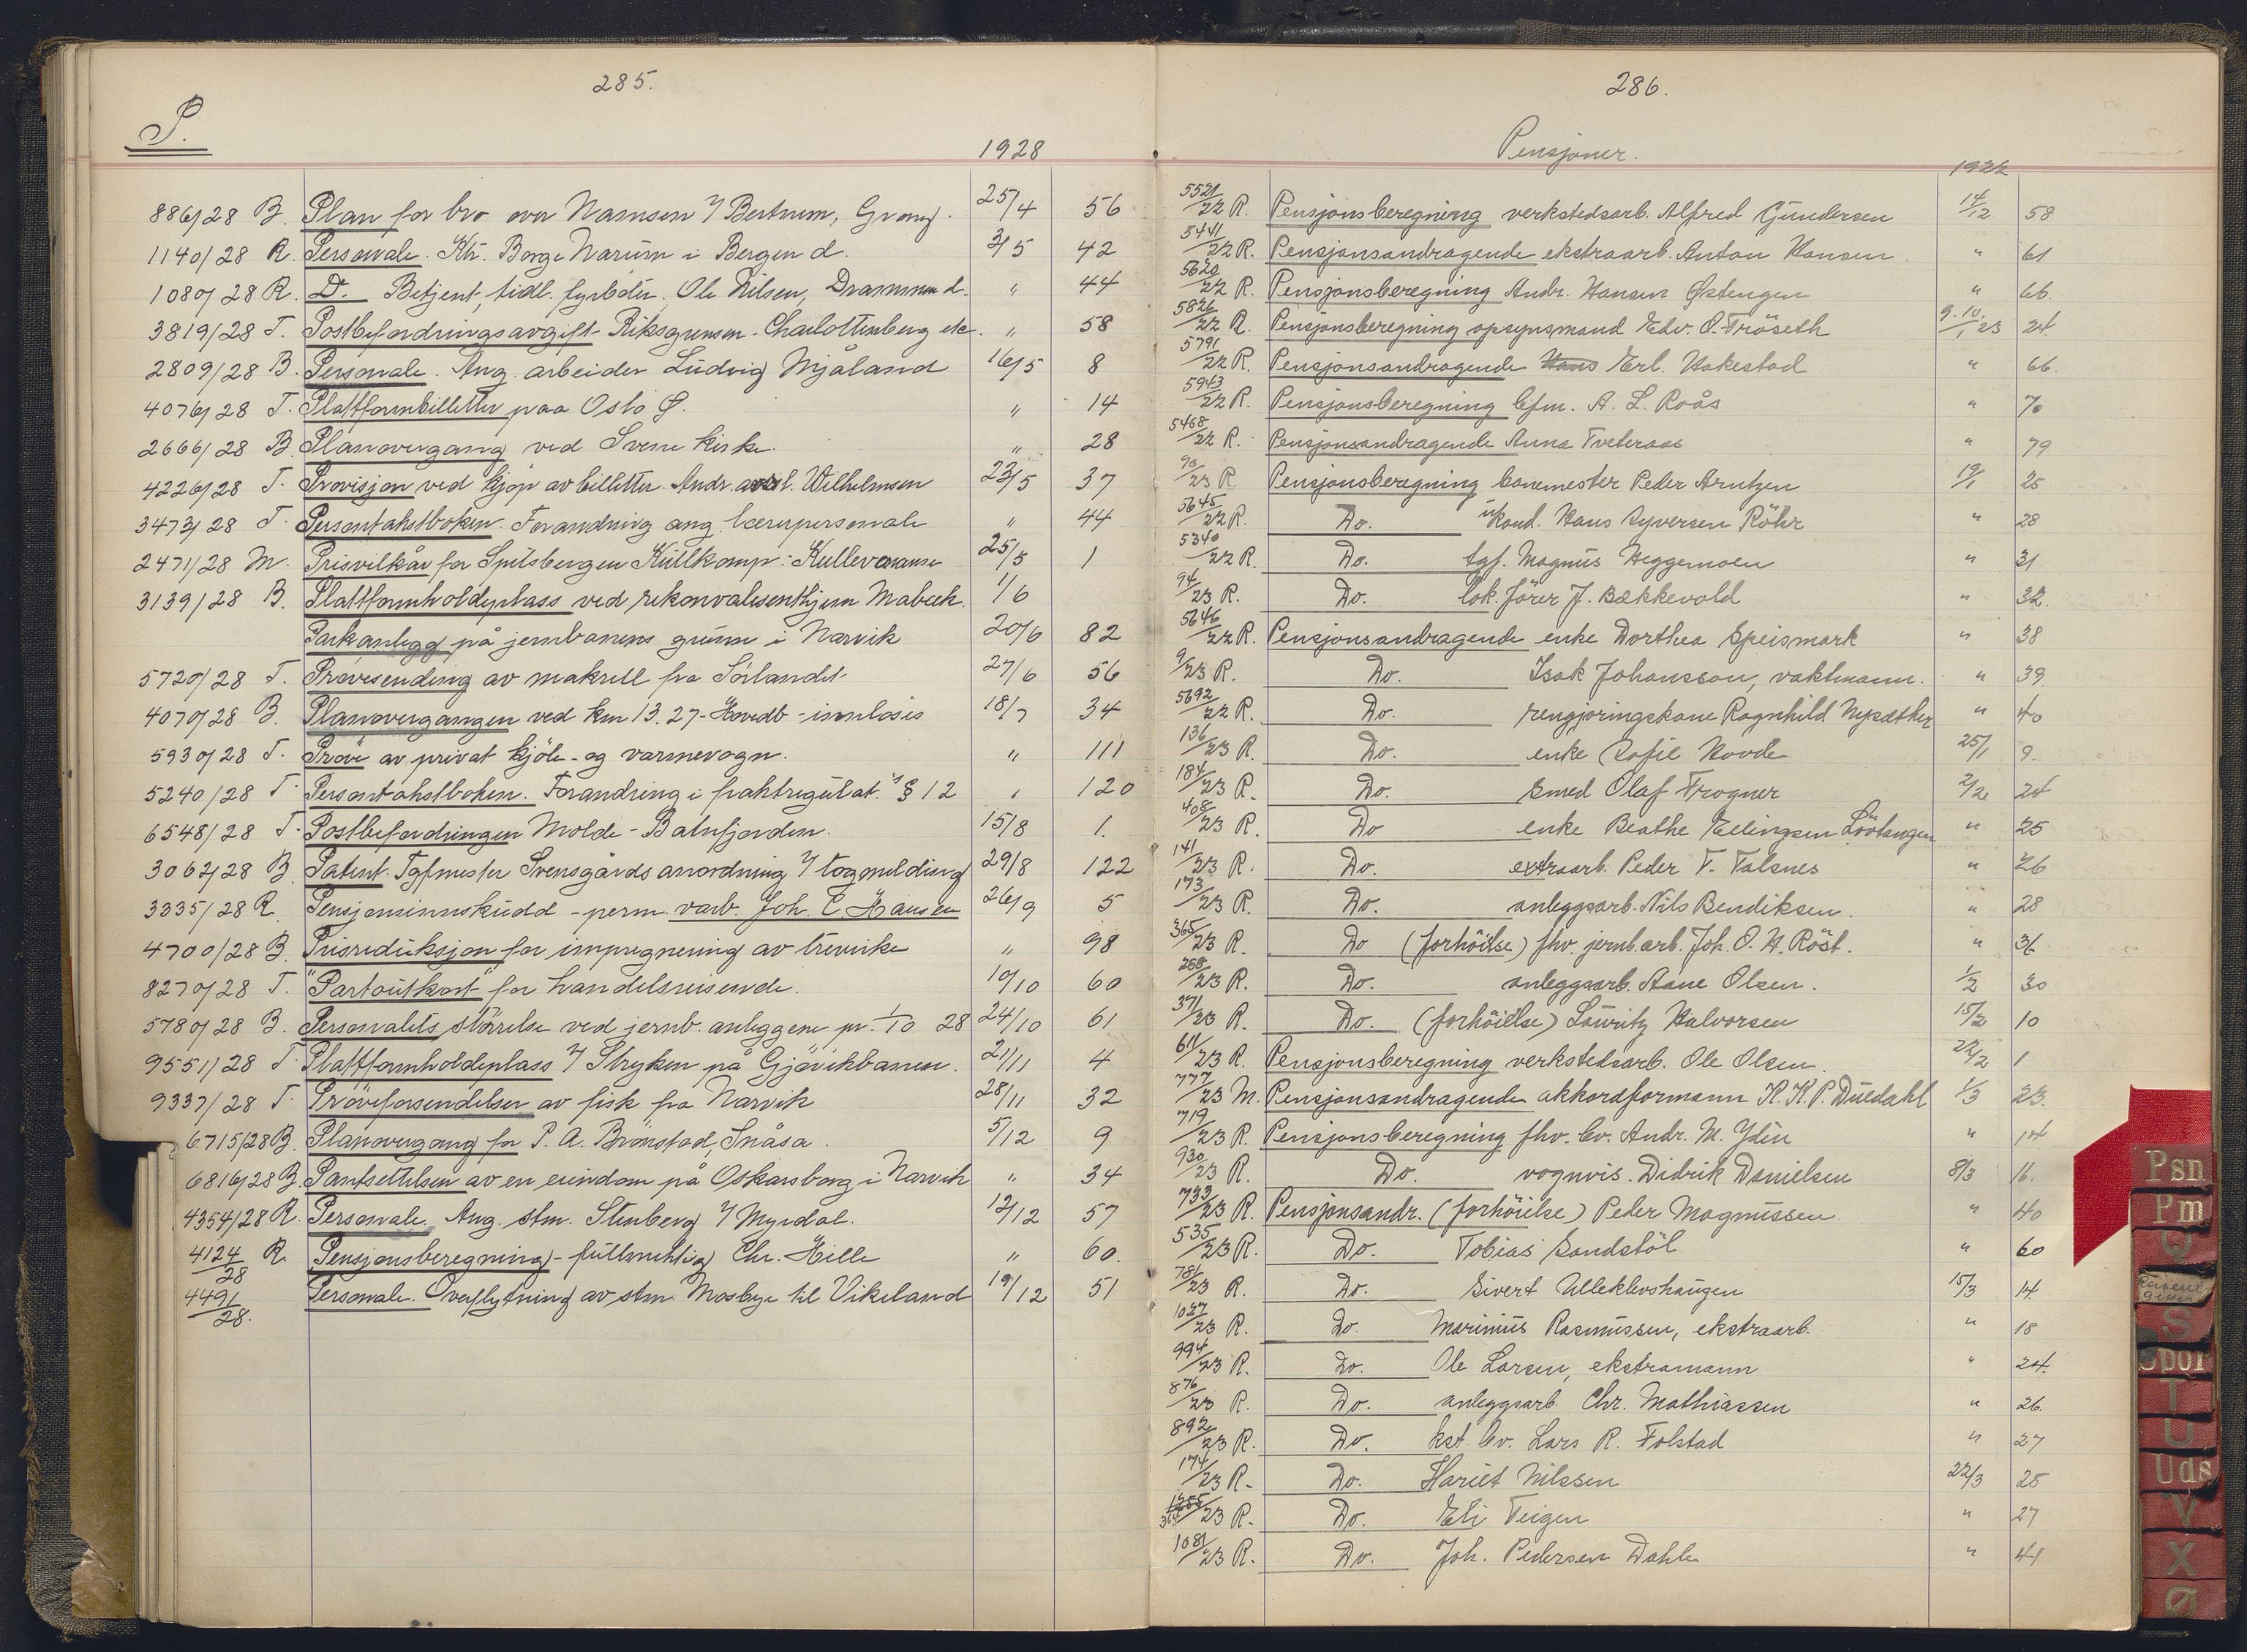 285.
P.
1928
886/28 B. Plan for bro over Namsen v/ Bertnem, Grong. 25/4 56
1140/28 R. Personale. Ktr. Borge Narum i Bergen d. 3/5 42
1080/28 R. D. Betjent, tidl. fyrböter. Ole Nilsen, Drammen d. " 44
3819/28 T. Postbefordringsavgift Riksgrensen - Charlottenberg etc. " 58
2809/28 B. Personale. Ang. arbeider Ludvig Mjåland 16/5 8
4076/28 T. Plattformbilletter paa Oslo Ø. " 14
2666/28 B. Planovergang ved Svene kirke. " 28
4226/28 T. Provisjon ved kjöp av billetter. Andr. Wilhelmsen 23/5 37
3473/28 T. Persontakstboken. Forandring ang. lærerpersonale " 44
2471/28 M. Prisvilkår for Spitsbergen Kullkomp. Kulleveranse 25/5 1
3139/28 B. Plattformholdeplass ved rekonvalesenthjem Mabeck. 1/6
Parkanlegg på jernbanens grunn i Narvik 20/6 82
5720/28 T. Prøvesending av makrell fra Sörlandet 27/6 56
4070/28 B. Planovergangen ved km 13.27 - Hovedb - innlöses 18/7 34
5930/28 T. Pröve av privat kjöle- og varmevogn. " 111
5240/28 T. Persontakstboken. Forandring i fraktregulat.s § 12 " 120
6548/28 T. Postbefordringen Molde - Batnfjorden. 15/8 1.
3062/28 B. Patent. Tgfmester Svensgårds anordning v/ togmelding 29/8 122
3335/28 R. Pensjonsinnskudd - perm. varb. Joh. C. Hansen 26/9 5
4700/28 B. Prisreduksjon for impregnering av trevirke " 98
8270/28 T. "Partoutkort" for handelsreisende. 10/10 60
5780/28 B. Personalets störrelse ved jernb. anleggene pr. 1/10 28 24/10 61
9551/28 T. Plattformholdeplass v/ Stryken på Gjövikbanen. 21/11 4
9337/28 T. Pröveforsendelser av fisk fra Narvik 28/11 32
6715/28 B. Planovergang for P. A. Brönstad, Snåsa. 5/12 9
6816/28 B. Pantsettelsen av en eiendom på Oskarsborg i Narvik " 34
4354/28 R. Personale. Ang. stm. Stenberg v/ Myrdal. 12/12 57
4124/28 R. Pensjonsberegning - fullmektig Chr. Hille " 60.
4491/28. Personale. Overflytning av stm Mosbye til Vikeland 19/12 51
286.
Pensjoner.
1922
5521/22 R. Pensjonsberegning verkstedsarb. Alfred Gundersen 14/12 58
5441/22 R. Pensjonsandragende ekstraarb. Anton Hansen. " 61
5620/22 R. Pensjonsberegning Andr. Hansen Østengen " 66.
5826/22 R. Pensjonsberegning opsynsmand Edv. O. Fröseth 9.10./1 23 24.
5791/22 R. Pensjonsandragende Hans Erl. Hakestad " 66.
5943/22 R. Pensjonsberegning bfm. A. L. Roås " 70
5468/22 R. Pensjonsandragende Anna Tveteraas " 79
90/23 R. Pensjonsberegning banemester Peder Arntzen 19/1 25
5645/22 R. Do. uKond. Hans Syversen Röhr " 28
5340/22 R. Do. tgf. Magnus Heggemoen " 31
94/23 R. Do. lok.förer J. Bækkevold " 32.
5646/22 R. Pensjonsandragende enke Dorthea Speismark " 38
9/23 R. Do. Isak Johansson, vaktmann. " 39
5692/22 R. Do. rengjöringskone Ragnhild Nysæther " 40
136/23 R. Do. enke Sofie Hovde 25/1 9.
184/23 R. Do. smed Olaf Frogner 2/2 24
408/23 R. Do enke Beathe Ellingsen Lövtangen " 25
141/23 R. Do. extraarb. Peder T. Talsnes " 26
173/23 R. Do. anleggsarb. Nils Bendiksen. " 28
365/23 R. Do (forhöielse) fhv. jernb.arb. Joh. O. H. Röst. " 36
268/23 R. Do. anleggsarb. Aane Olsen. 1/2 30
371/23 R. Do. (forhöielse) Lauritz Halvorsen 15/2 10
611/23 R. Pensjonsberegning verkstedsarb. Ole Olsen. 22/2 1
777/23 M. Pensjonsandragende akkordformann K. K. P. Duedahl 1/3 23.
719/23 R. Pensjonsberegning fhv. bv. Andr. M. Ydin " 14
930/23 R. Do. vognvis. Didrik Danielsen 8/3 16.
733/23 R. Pensjonsandr. (forhöielse) Peder Magnussen " 40
535/23 R. Do. Tobias Sandstöl " 60
781/23 R. Do. Sivert Ulleklevshaugen 15/3 14
1037/23 R. Do. Marinius Rasmussen, ekstraarb. " 18
994/23 R. Do. Ole Larsen, ekstramann " 24.
876/23 R. Do. anleggsarb. Chr. Mathiassen " 26.
892/23 R. Do. kst. bv. Lars R. Folstad " 27
174/23 R. Do. Hariet Nilssen 22/3 25
/23 R. Do. Eli Teigen " 27
1081/23 R. Do. Joh. Pedersen Dahle " 41
Psn
Pm
Q
S
Spor
T
U
Uds
V
X
Ø